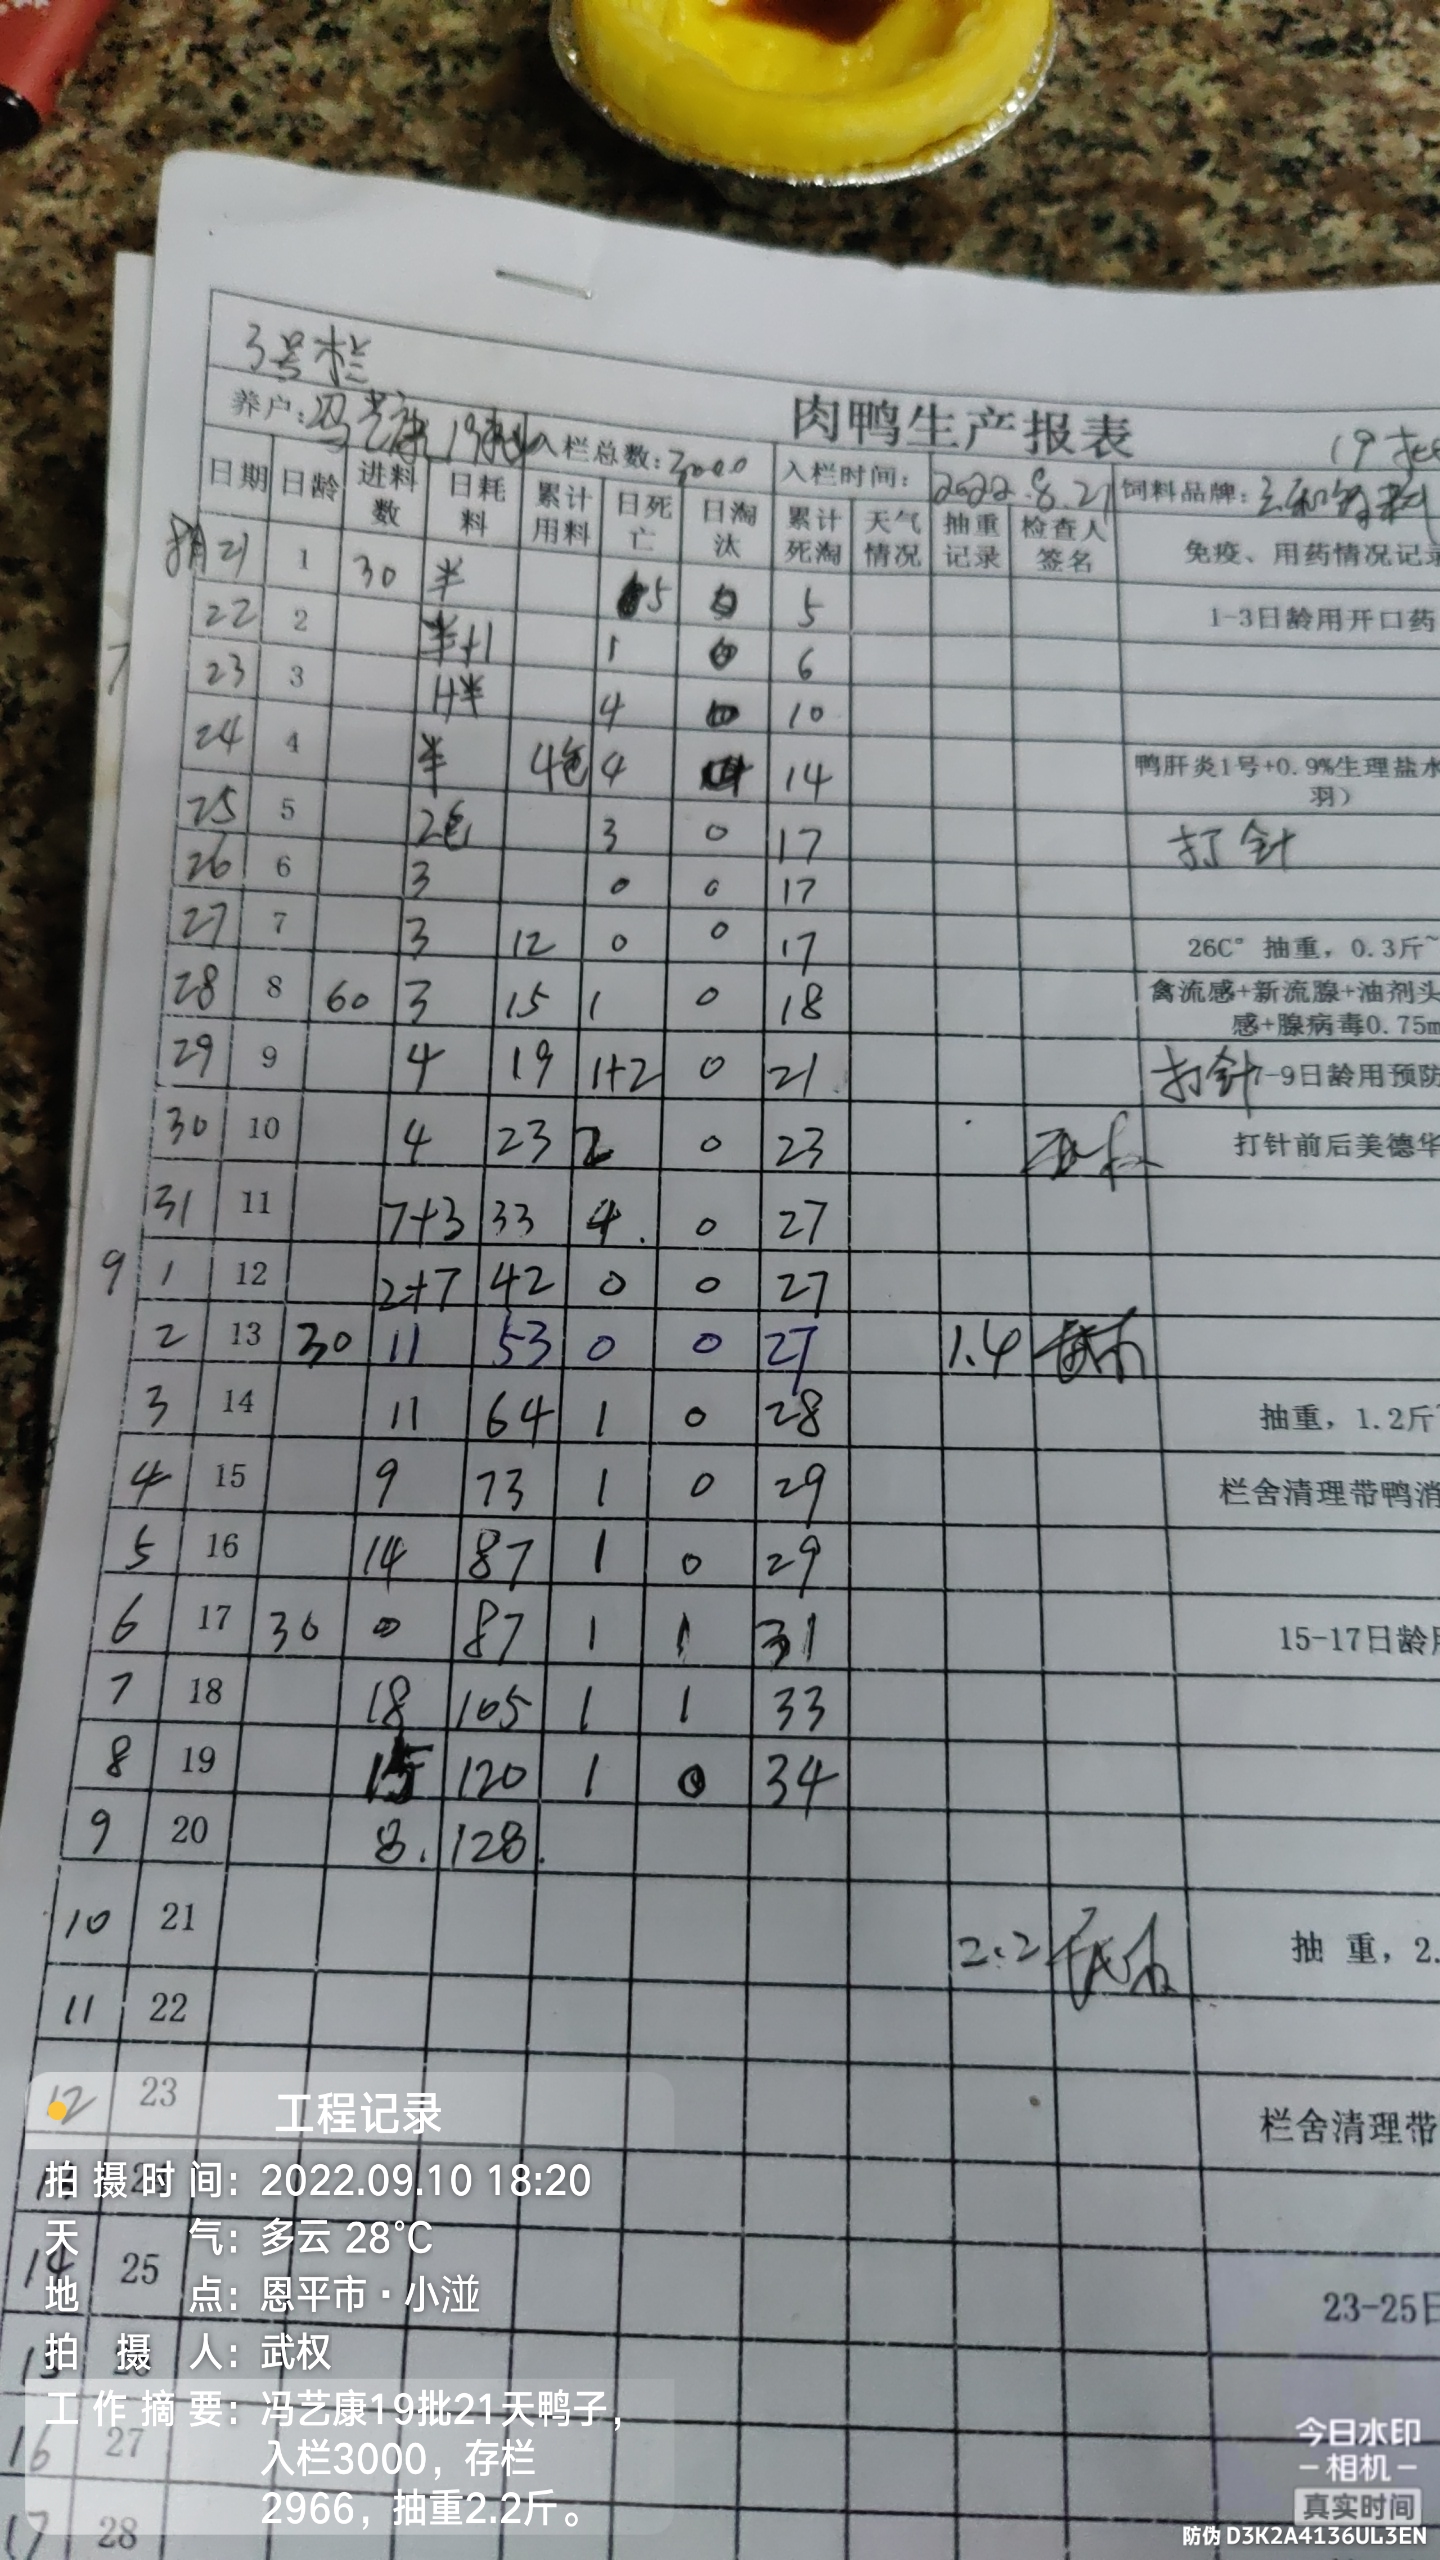 3号栏
肉鸭生产报表
养户:冯艺康 19批 入栏总数:3000 入栏时间: 2022.8.21 饲料品牌: 19批
日期 日龄 进料数 日耗料 累计用料 日死亡 日淘汰 累计死淘 天气情况 抽重记录 检查人签名 免疫、用药情况记录
8月21 1 30 半 5 0 5 1-3日龄用开口药
22 2 半+1 1 0 6
23 3 1+半 4 0 10
24 4 半 4包 4 14 鸭肝炎1号+0.9%生理盐水
羽)
25 5 2包 3 0 17 打针
26 6 3 0 0 17
27 7 3 12 0 0 17 26C° 抽重,0.3斤~
28 8 60 3 15 1 0 18 禽流感+新流腺+油剂头
感+腺病毒0.75m
29 9 4 19 1+2 0 21 打针 7-9日龄用预防
30 10 4 23 2 0 23 武权 打针前后美德华
31 11 7+3 33 4 0 27
9 1 12 2+7 42 0 0 27
2 13 30 11 53 0 0 27 1.4 武权
3 14 11 64 1 0 28 抽重,1.2斤
4 15 9 73 1 0 29 栏舍清理带鸭消
5 16 14 87 1 0 29
6 17 30 0 87 1 1 31 15-17日龄用
7 18 18 105 1 1 33
8 19 15 120 1 0 34
9 20 8. 128.
10 21 2.2 武权 抽 重,2.
11 22
12 23 栏舍清理带
13 24
14 25 23-25日
15 26
16 27
17 28
工程记录
拍摄时间: 2022.09.10 18:20
天气: 多云 28℃
地点: 恩平市·小湴
拍摄人: 武权
工作摘要: 冯艺康19批21天鸭子,
入栏3000,存栏
2966,抽重2.2斤。
今日水印
相机
真实时间
防伪 D3K2A4136UL3EN